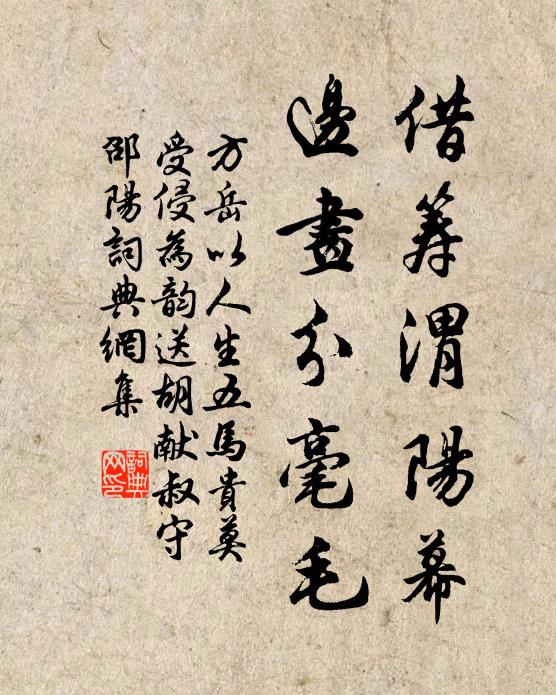 借筹渭陽幕
邊畫分毫毛
方岳以人生五馬貴莫
受侵為韵送胡献叔守
邵陽詞典網集
詞典网印